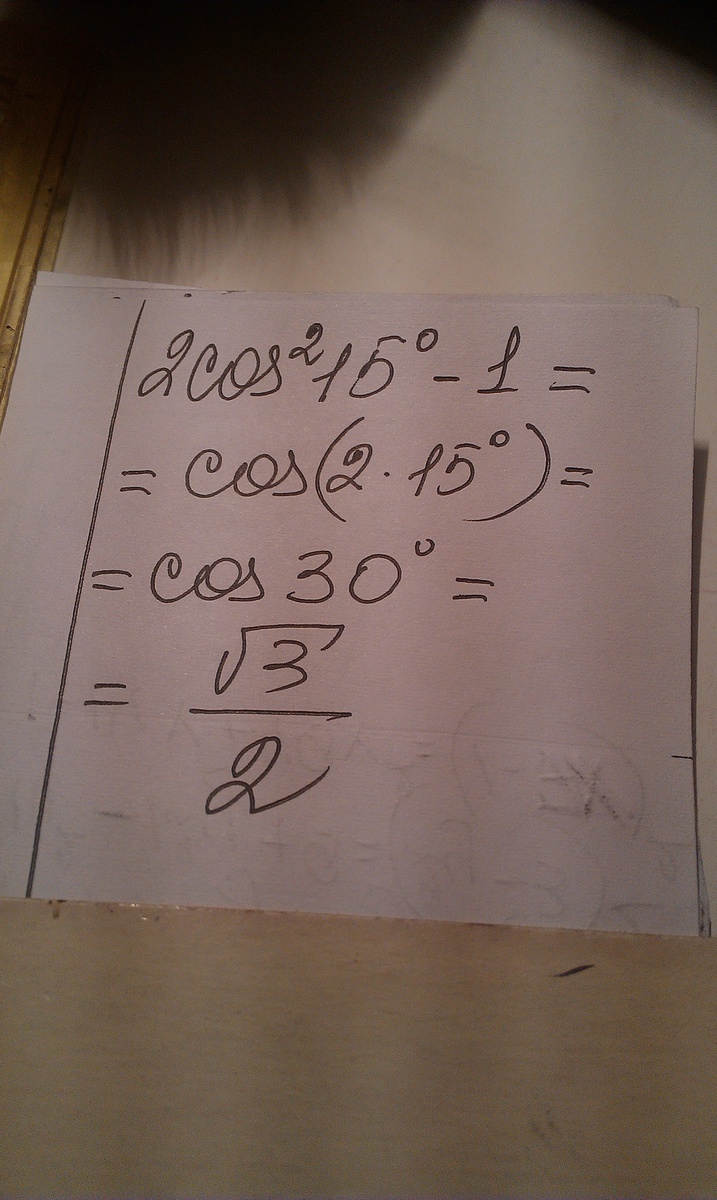 2cos²15° - 1 =
= cos(2 · 15°) =
= cos 30° =
= √3/2